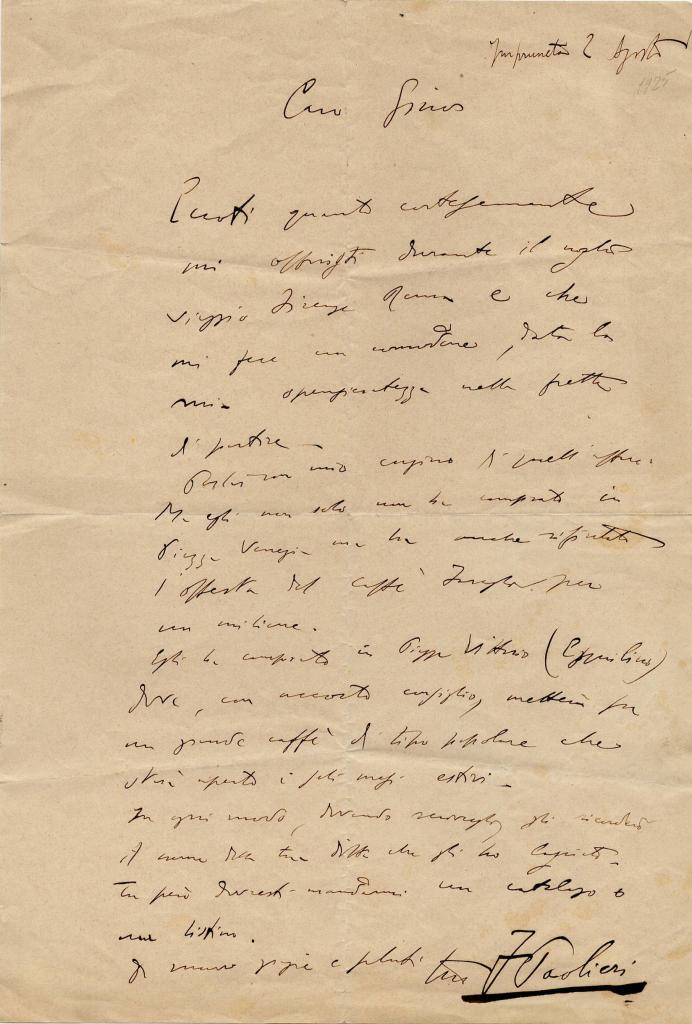 Impruneta 2 Agosto
1925
Caro Gino
Eccoti quanto cortesemente
mi offristi durante il
viaggio Firenze Roma e che
mi fece un comodone, data la
mia spensieratezza nella fretta
di partire.
Parlai con mio cugino di quell'affare.
Ma egli non solo non ha comprato in
Piazza Venezia ma ha anche rifiutato
l'offerta del caffè per
un milione.
Egli ha comprato in Piazza Vittorio (Esquilino)
dove, con accorto consiglio, metterà su
un grande caffè di tipo popolare che
starà aperto i soli mesi estivi.
In ogni modo, dovendo gli ricorderò
il nome della tua ditta che gli ho
Tu però dovresti mandarmi un catalogo o
un listino.
Di nuovo grazie e saluti tuo F Paolieri